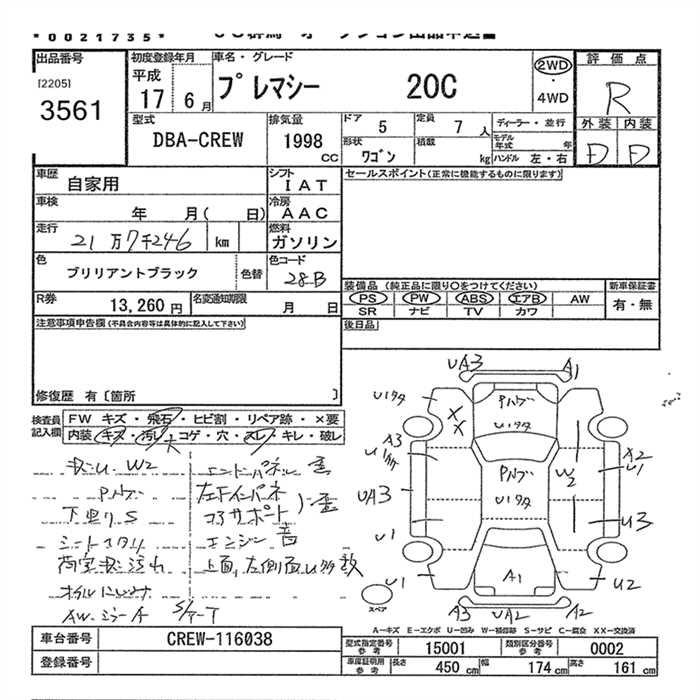 *0021735*
出品番号
[2205]
3561
初度登録年月
平成
17 6月
車名・グレード
プレマシー 20C
2WD
4WD
評価点
R
外装 内装
D D
型式
DBA-CREW
排気量
1998
cc
ドア
5
定員
7 人
形状
ワゴン
積載
kg
ディーラー・並行
モデル年式 年
ハンドル 左・右
車歴
自家用
シフト
IAT
車検
年 月( 日)
冷房
AAC
走行
21万7千246 km
燃料
ガソリン
色
ブリリアントブラック
色替
色コード
28B
R券
13,260円
名変通知期限
月 日
セールスポイント(正常に機能するものに限ります)
装備品 (純正品に限り○をつけてください)
PS PW ABS エアB AW
SR ナビ TV カワ
新車保証書
有・無
後日品
注意事項申告欄(不具合内容等は具体的に記入して下さい)
修復歴 有〔箇所 〕
検査員記入欄
FW キズ・飛石・ヒビ割・リペア跡・×要
内装 キズ・汚レ・コゲ・穴・スレ・キレ・破レ
大
W2
エンドパネル歪
Pルーフ
左Fインパネ
下廻りS
コアサポート
歪
エンジン音
上面、左側面U多数
AW・ミラーA
S/T-T
UA3
A1
U1タタ
Pルーフ
U1タタ
X
X
A3
U1
UA3
U1
U1
Pルーフ
U1タタ
W2
X2
U1
U3
U2
A1
A3
UA2
A2
スペア
A-キズ E-エクボ U-凹み W-補修跡 S-サビ C-腐食 XX-交換済
車台番号
CREW-116038
登録番号
型式指定番号 参考
15001
類別区分番号 参考
0002
車庫証明用 参考
長さ 450 cm
幅 174 cm
高さ 161 cm